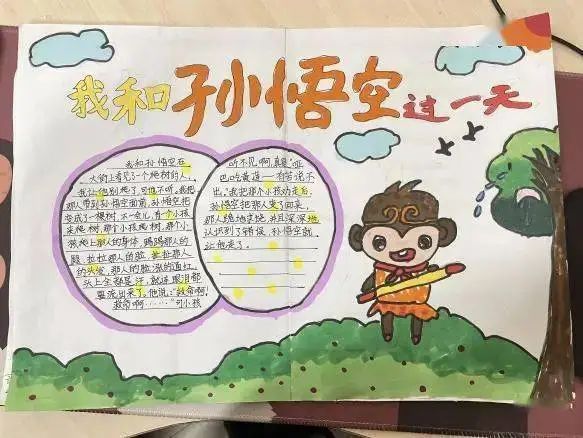 我和孙悟空过一天
我和孙悟空在
大街上看见了一个爬树的人，
我让他别爬了，可他不听。我把
那人带到孙悟空面前，孙悟空把
变成了一棵树，不一会儿，有个小孩
来爬树，那个小孩爬树，那个小
孩爬上那人的身体，踢踢那人的
腿，拉拉那人的脸，扯拉那人
的头发，那人的脸涨的通红，
头上全都是汗，就连眼泪都
要流出来了。他说：“救命啊！
救命啊……”可小孩
听不见啊，真是“哑
巴吃黄连——有苦说不
出。”我把那个小孩劝走后，
孙悟空把那人变了回来，
那人绝地求饶，并且深深地
认识到了错误，孙悟空就
让他走了。